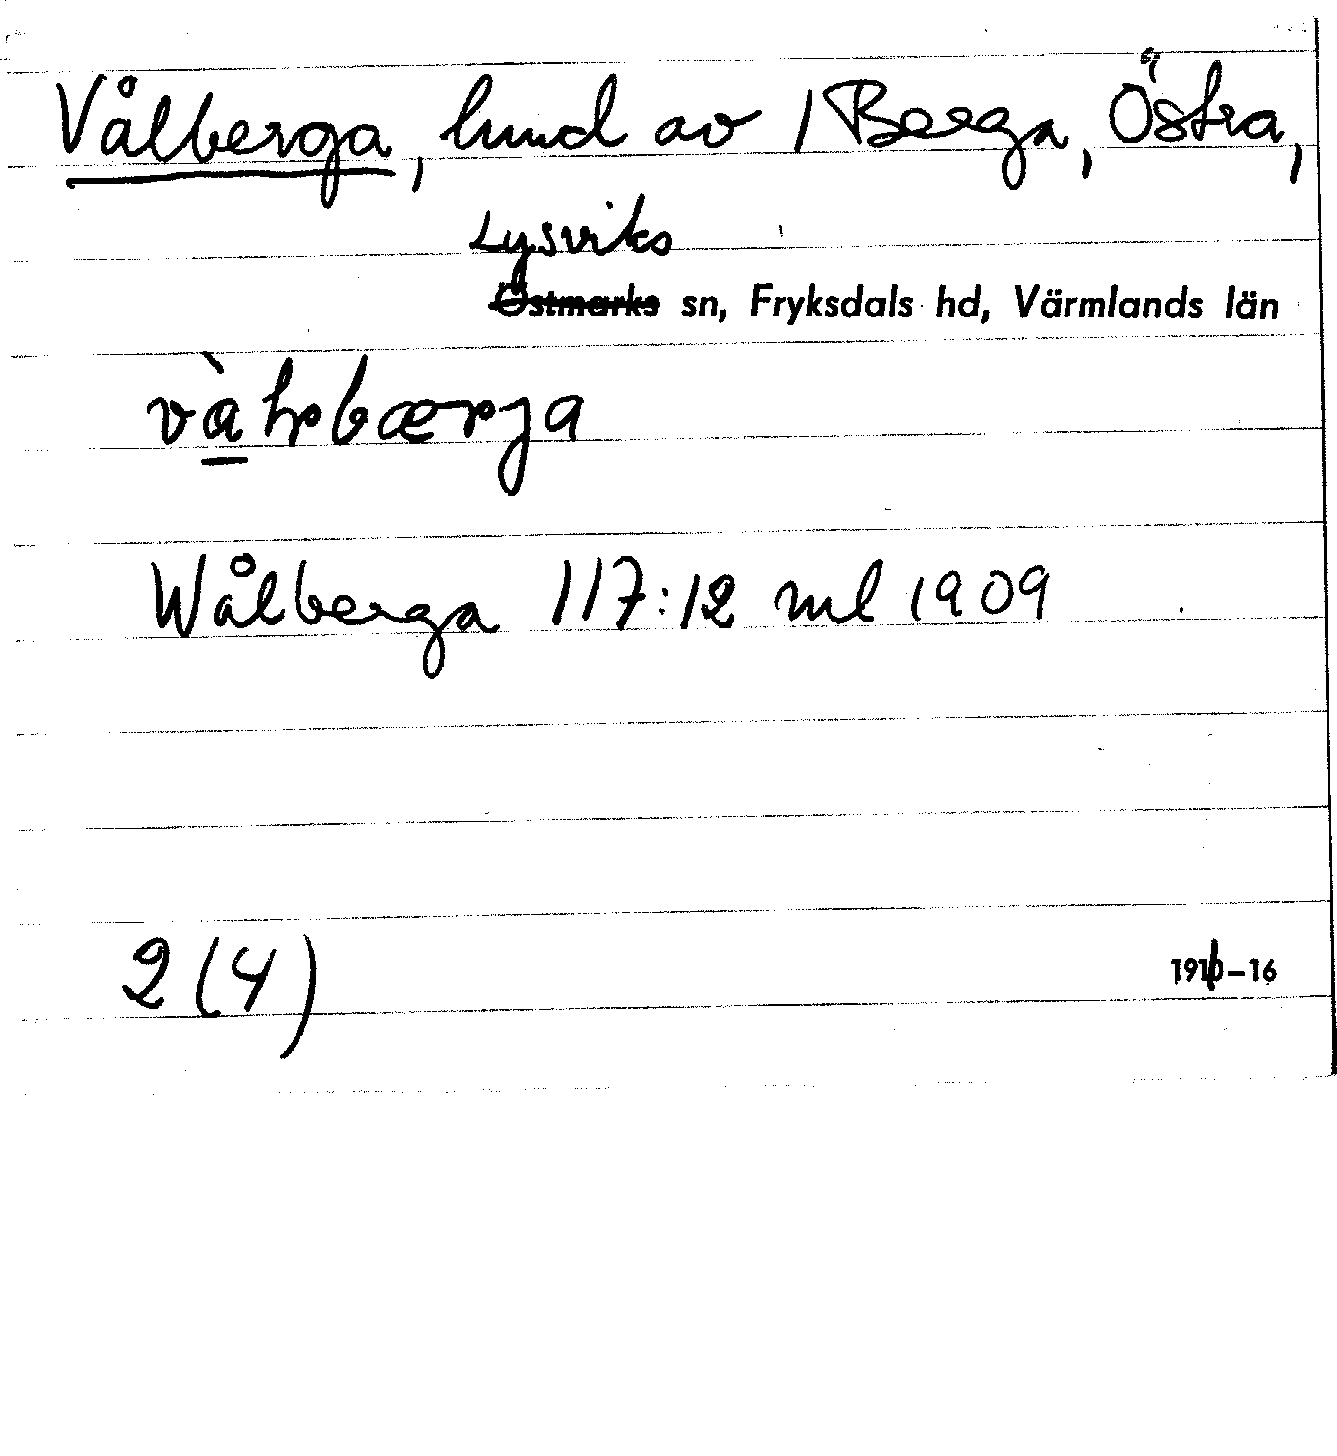 Vålberga, lund av 1 Berga, Östra,
Lysviks
Östmarks sn, Fryksdals hd, Värmlands län
Wålberga 117:12 ml 1909
2(4)
-16